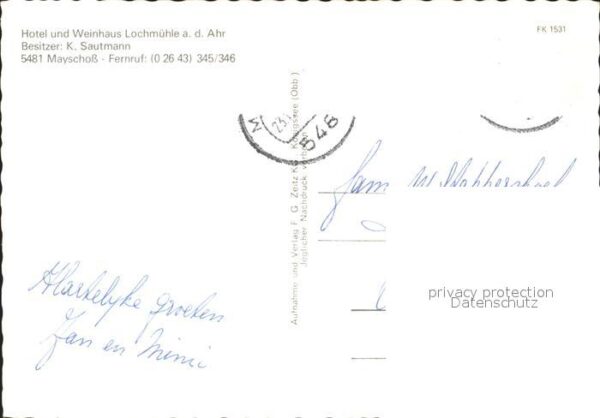 Hotel und Weinhaus Lochmühle a. d. Ahr
Besitzer: K. Sautmann
5481 Mayschoß - Fernruf: (0 26 43) 345/346
FK 1531
Aufnahme und Verlag F. G. Zeitz KG., Königssee (Obb.)
Jeglicher Nachdruck verboten
546
Fam
privacy protection
Datenschutz
Hartelyke groeten
Jan en Mimi